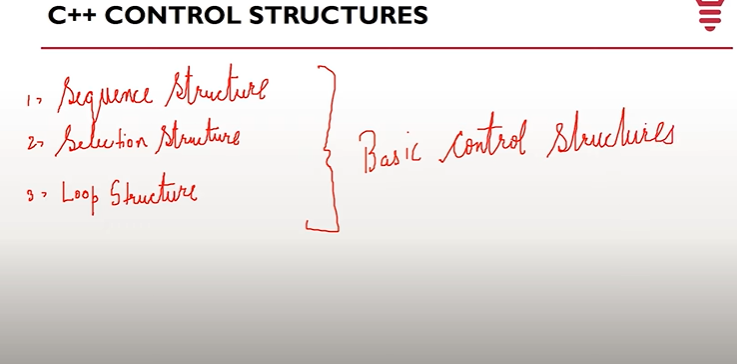 C++ CONTROL STRUCTURES
1> Sequence Structure
2> Selection Structure
3> Loop Structure
Basic Control Structures